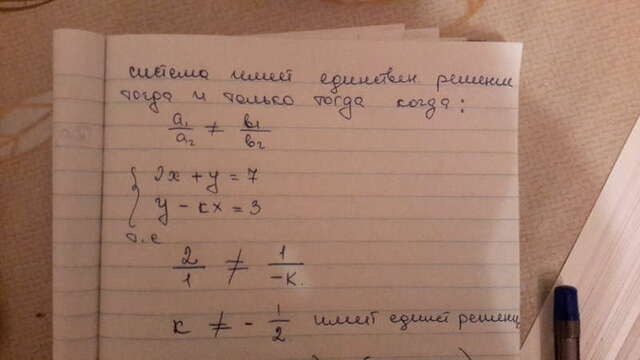 система имеет единствен решение
тогда и только тогда когда:
a₁/a₂ ≠ b₁/b₂
{ 2x + y = 7
y - kx = 3
т.е
2/1 ≠ 1/-k.
k ≠ - 1/2 имеет единст решени